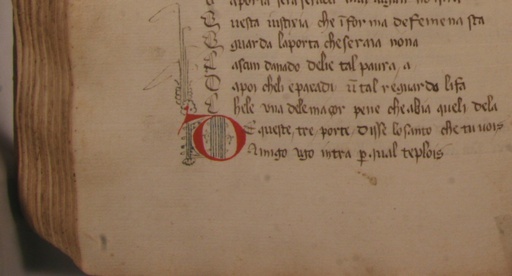 uesta iusticia che i forma de femena sta
guarda la porta che seraia nona
ascun danado delie tal paura a
apoi cheli e paradi un tal reguardo li fa
hele una dele maçor pene che abia queli dela
De queste tre porte disse lo santo che tu uois
Amigo ugo intra p qual te plois